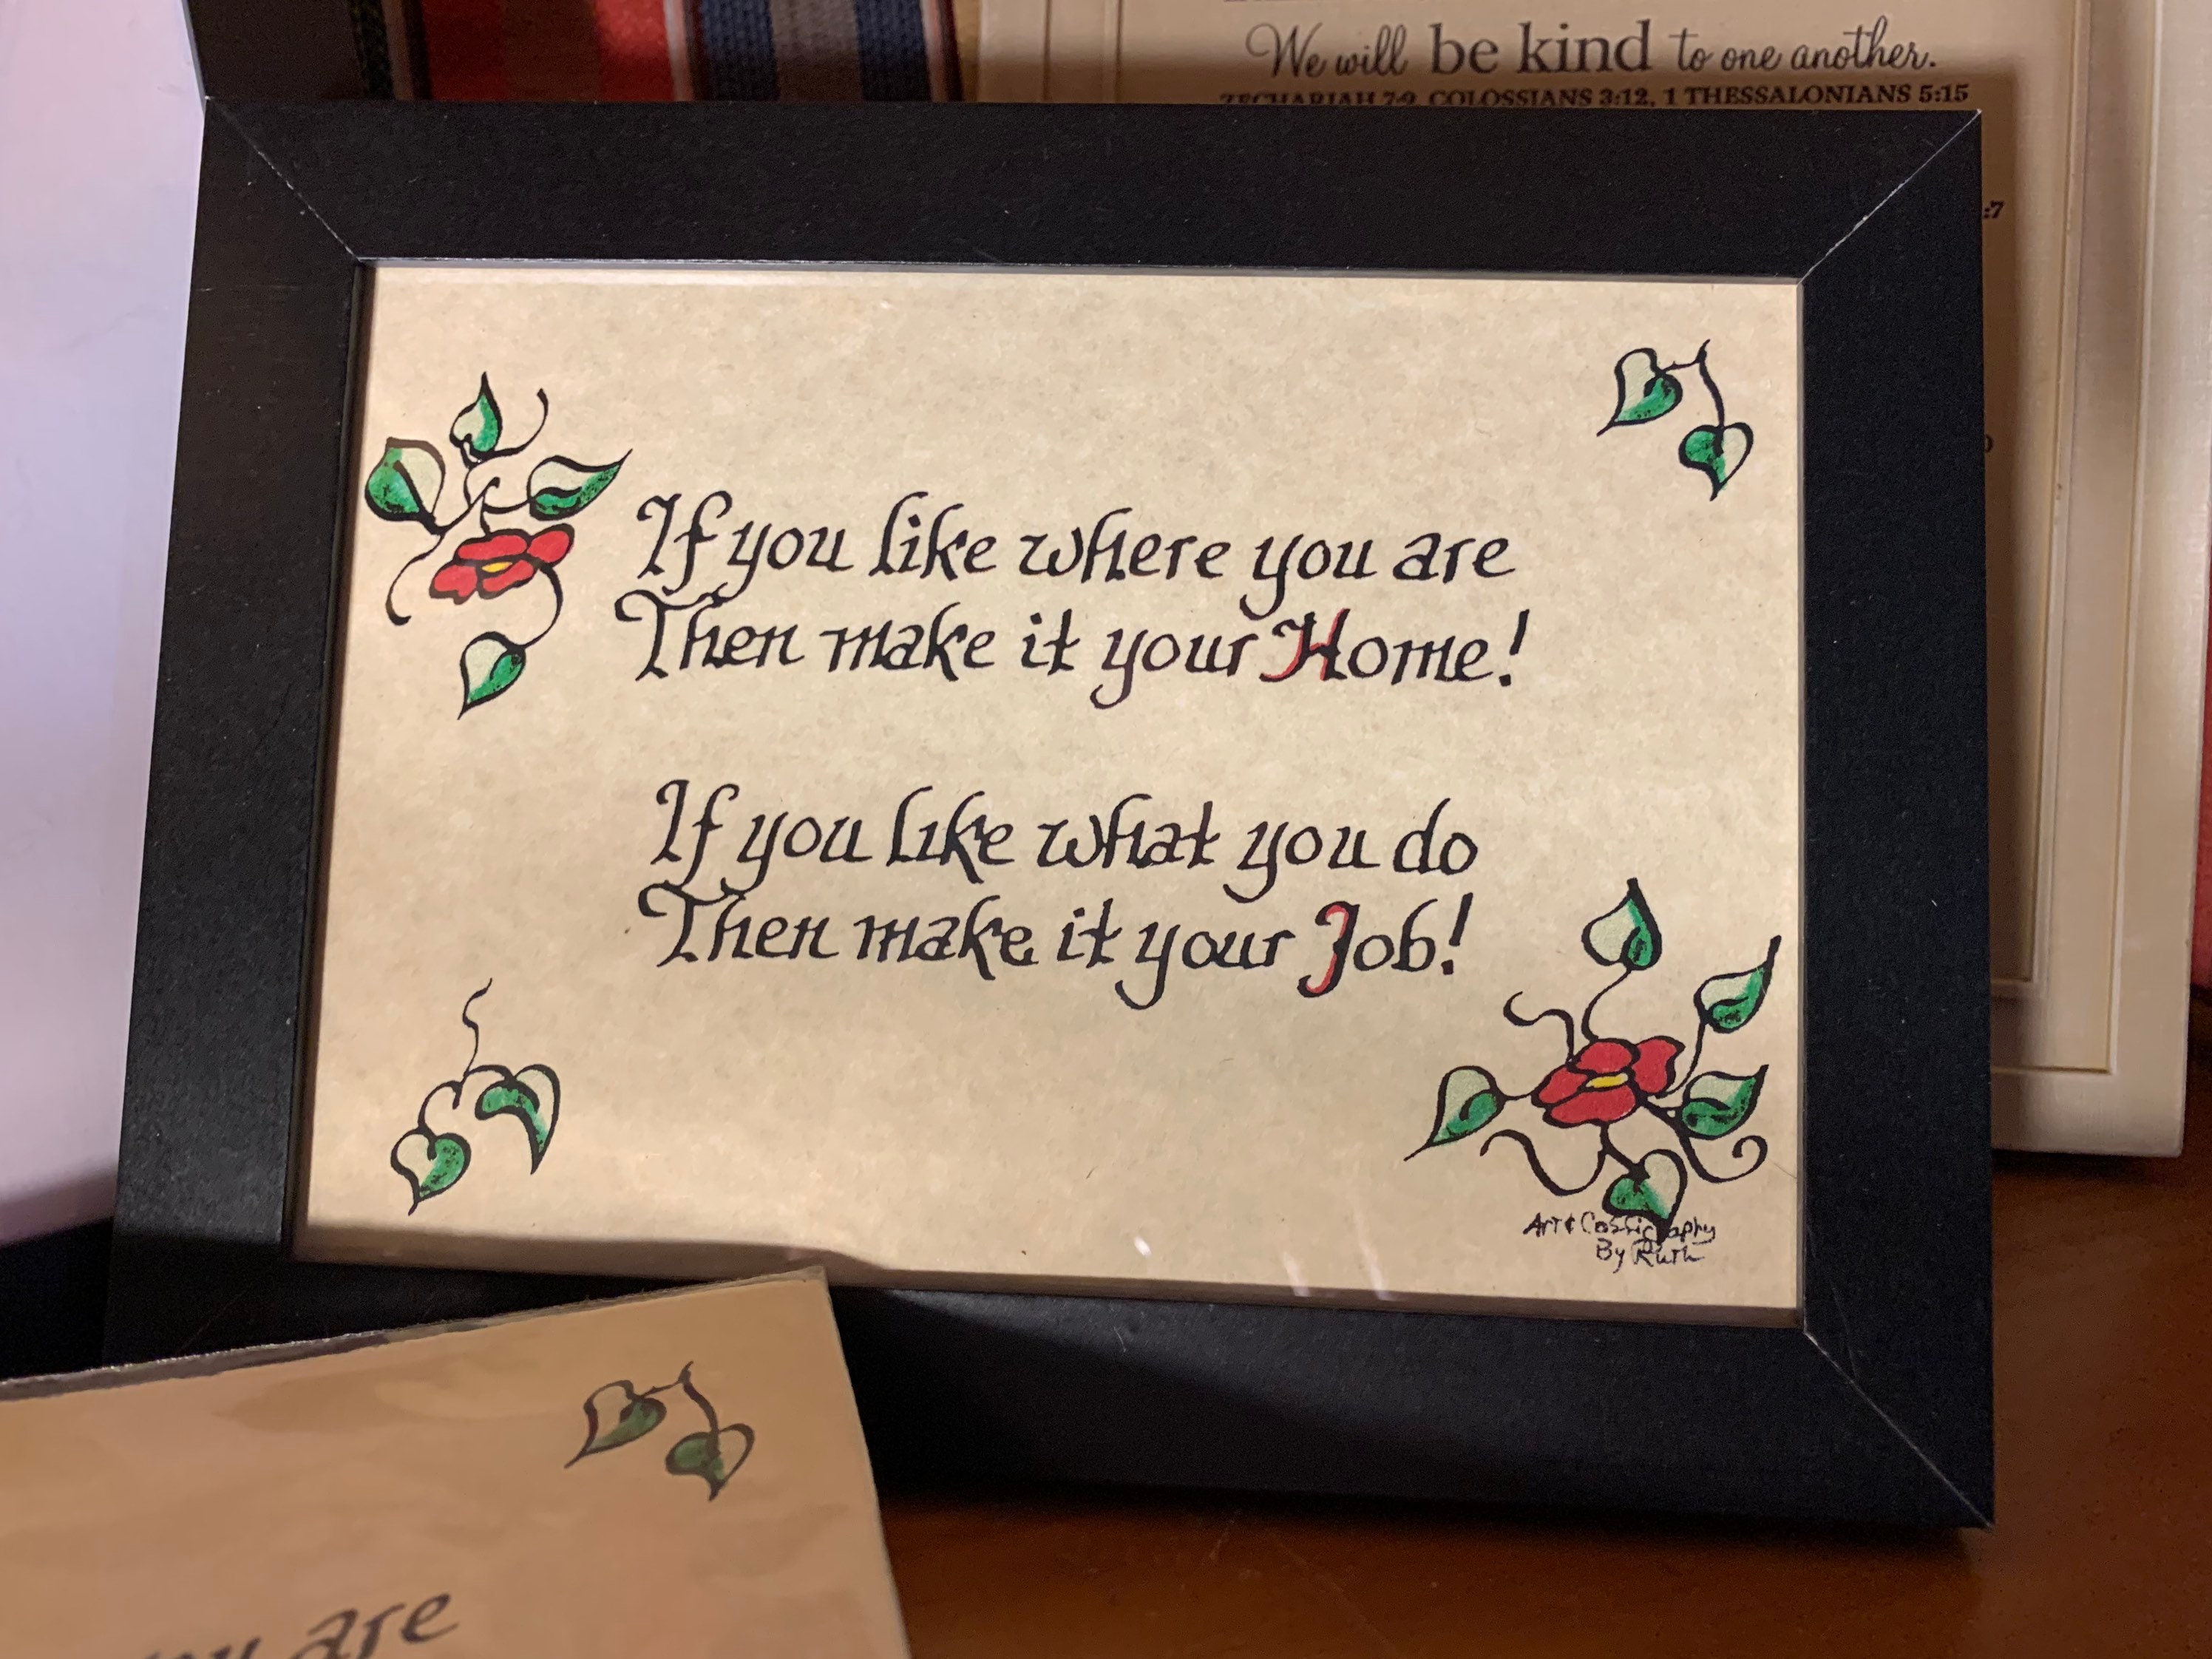 We will be kind to one another.
ZECHARIAH 7:9, COLOSSIANS 3:12, 1 THESSALONIANS 5:15
:7
If you like where you are
Then make it your Home!
If you like what you do
Then make it your Job!
Art & Calligraphy
By Ruth
you are